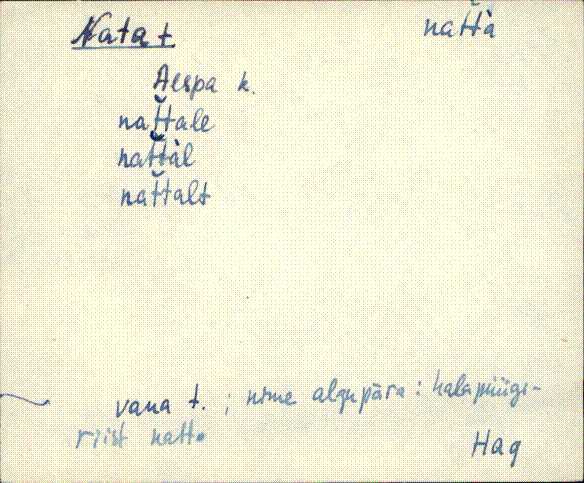 Nata t
nat̆t̆à
Aespa k.
nat̆t̆ale
nat̆t̆àl
nat̆t̆alt
vana t. ; nime algupära: kalapüügi-
riist natt.
Hag